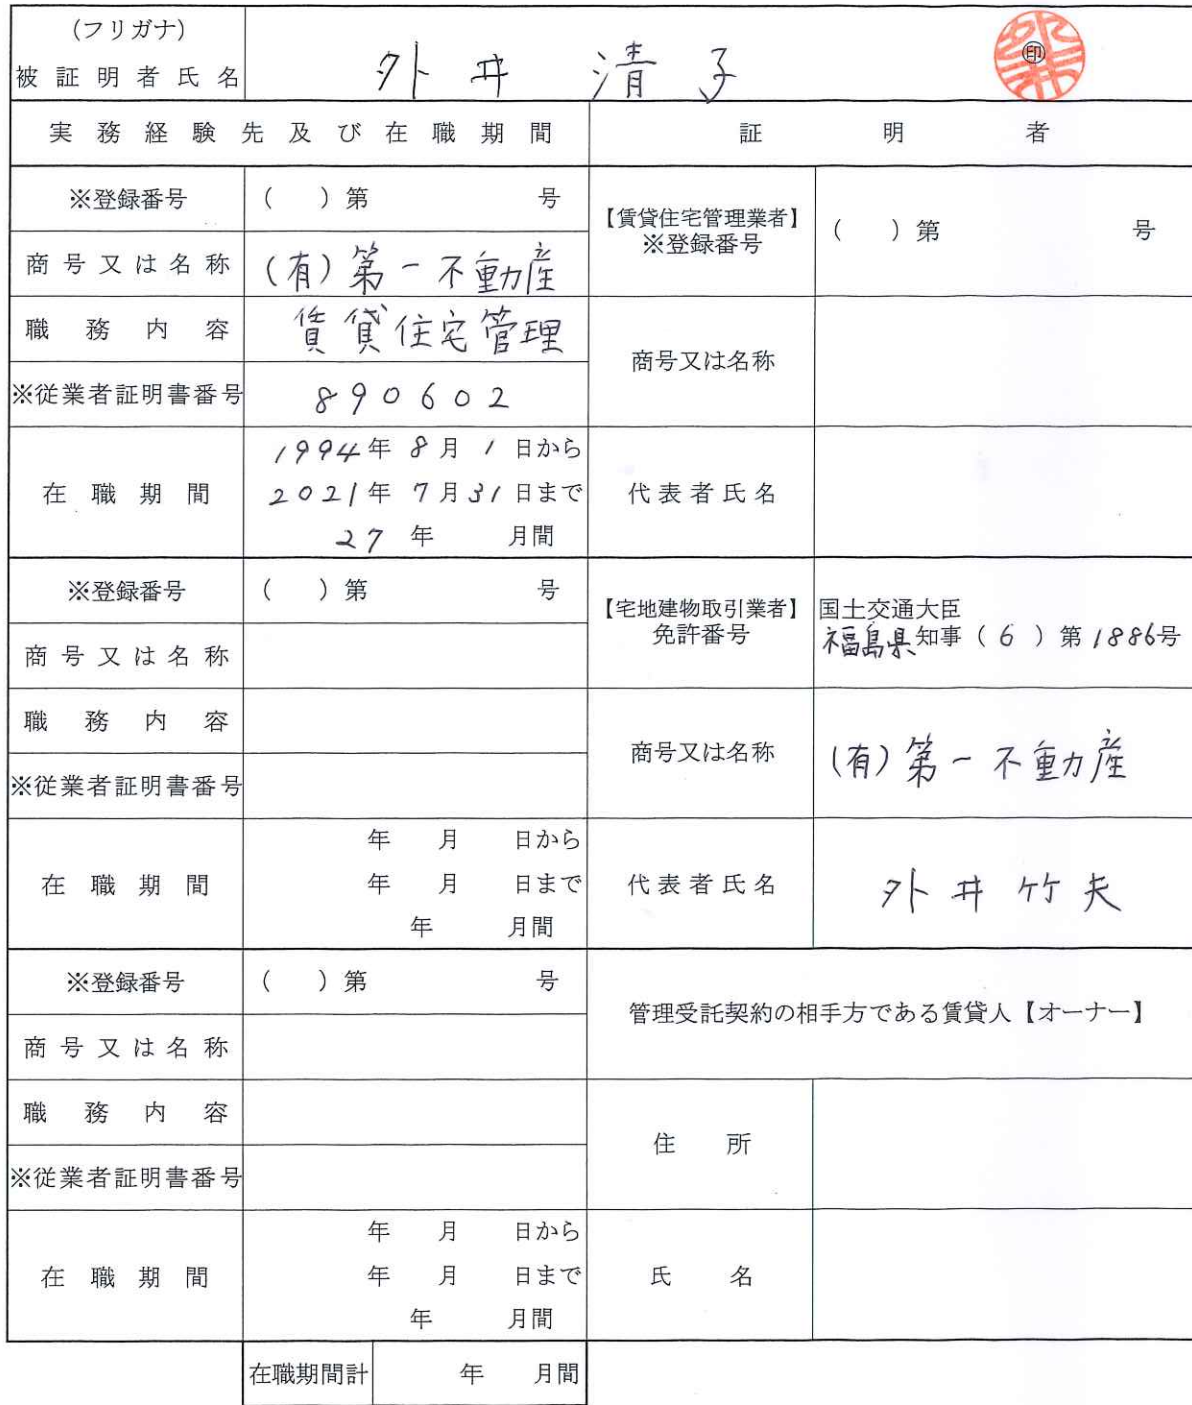 (フリガナ)
被証明者氏名
外井 清子
㊞
実務経験先及び在職期間
証明者
※登録番号
( )第 号
【賃貸住宅管理業者】
※登録番号
( )第 号
商号又は名称
(有)第一不動産
職務内容
賃貸住宅管理
商号又は名称
※従業者証明書番号
890602
在職期間
1994年8月1日から
2021年7月31日まで
27年 月間
代表者氏名
※登録番号
( )第 号
【宅地建物取引業者】
免許番号
国土交通大臣
福島県知事(6)第1886号
商号又は名称
職務内容
商号又は名称
(有)第一不動産
※従業者証明書番号
在職期間
年 月 日から
年 月 日まで
年 月間
代表者氏名
外井竹夫
※登録番号
( )第 号
管理受託契約の相手方である賃貸人【オーナー】
商号又は名称
職務内容
住所
※従業者証明書番号
在職期間
年 月 日から
年 月 日まで
年 月間
氏名
在職期間計
年 月間